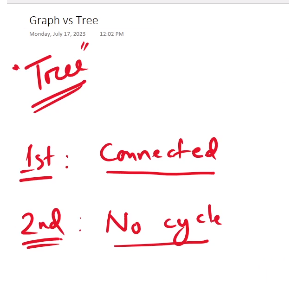 Graph vs Tree
Monday, July 17, 2023 12:02 PM
"Tree"
1st : Connected
2nd : No cycle